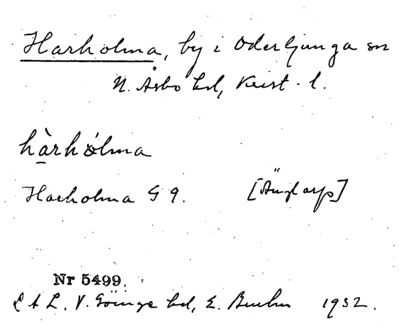 Harholma, by i Oderljunga sn
N. Åsbo hd, Krist. l.
hàrhólma
Harholma G 9. [Änglarp]
Nr 5499.
L A L. V. Göinge hd, E.        1932.